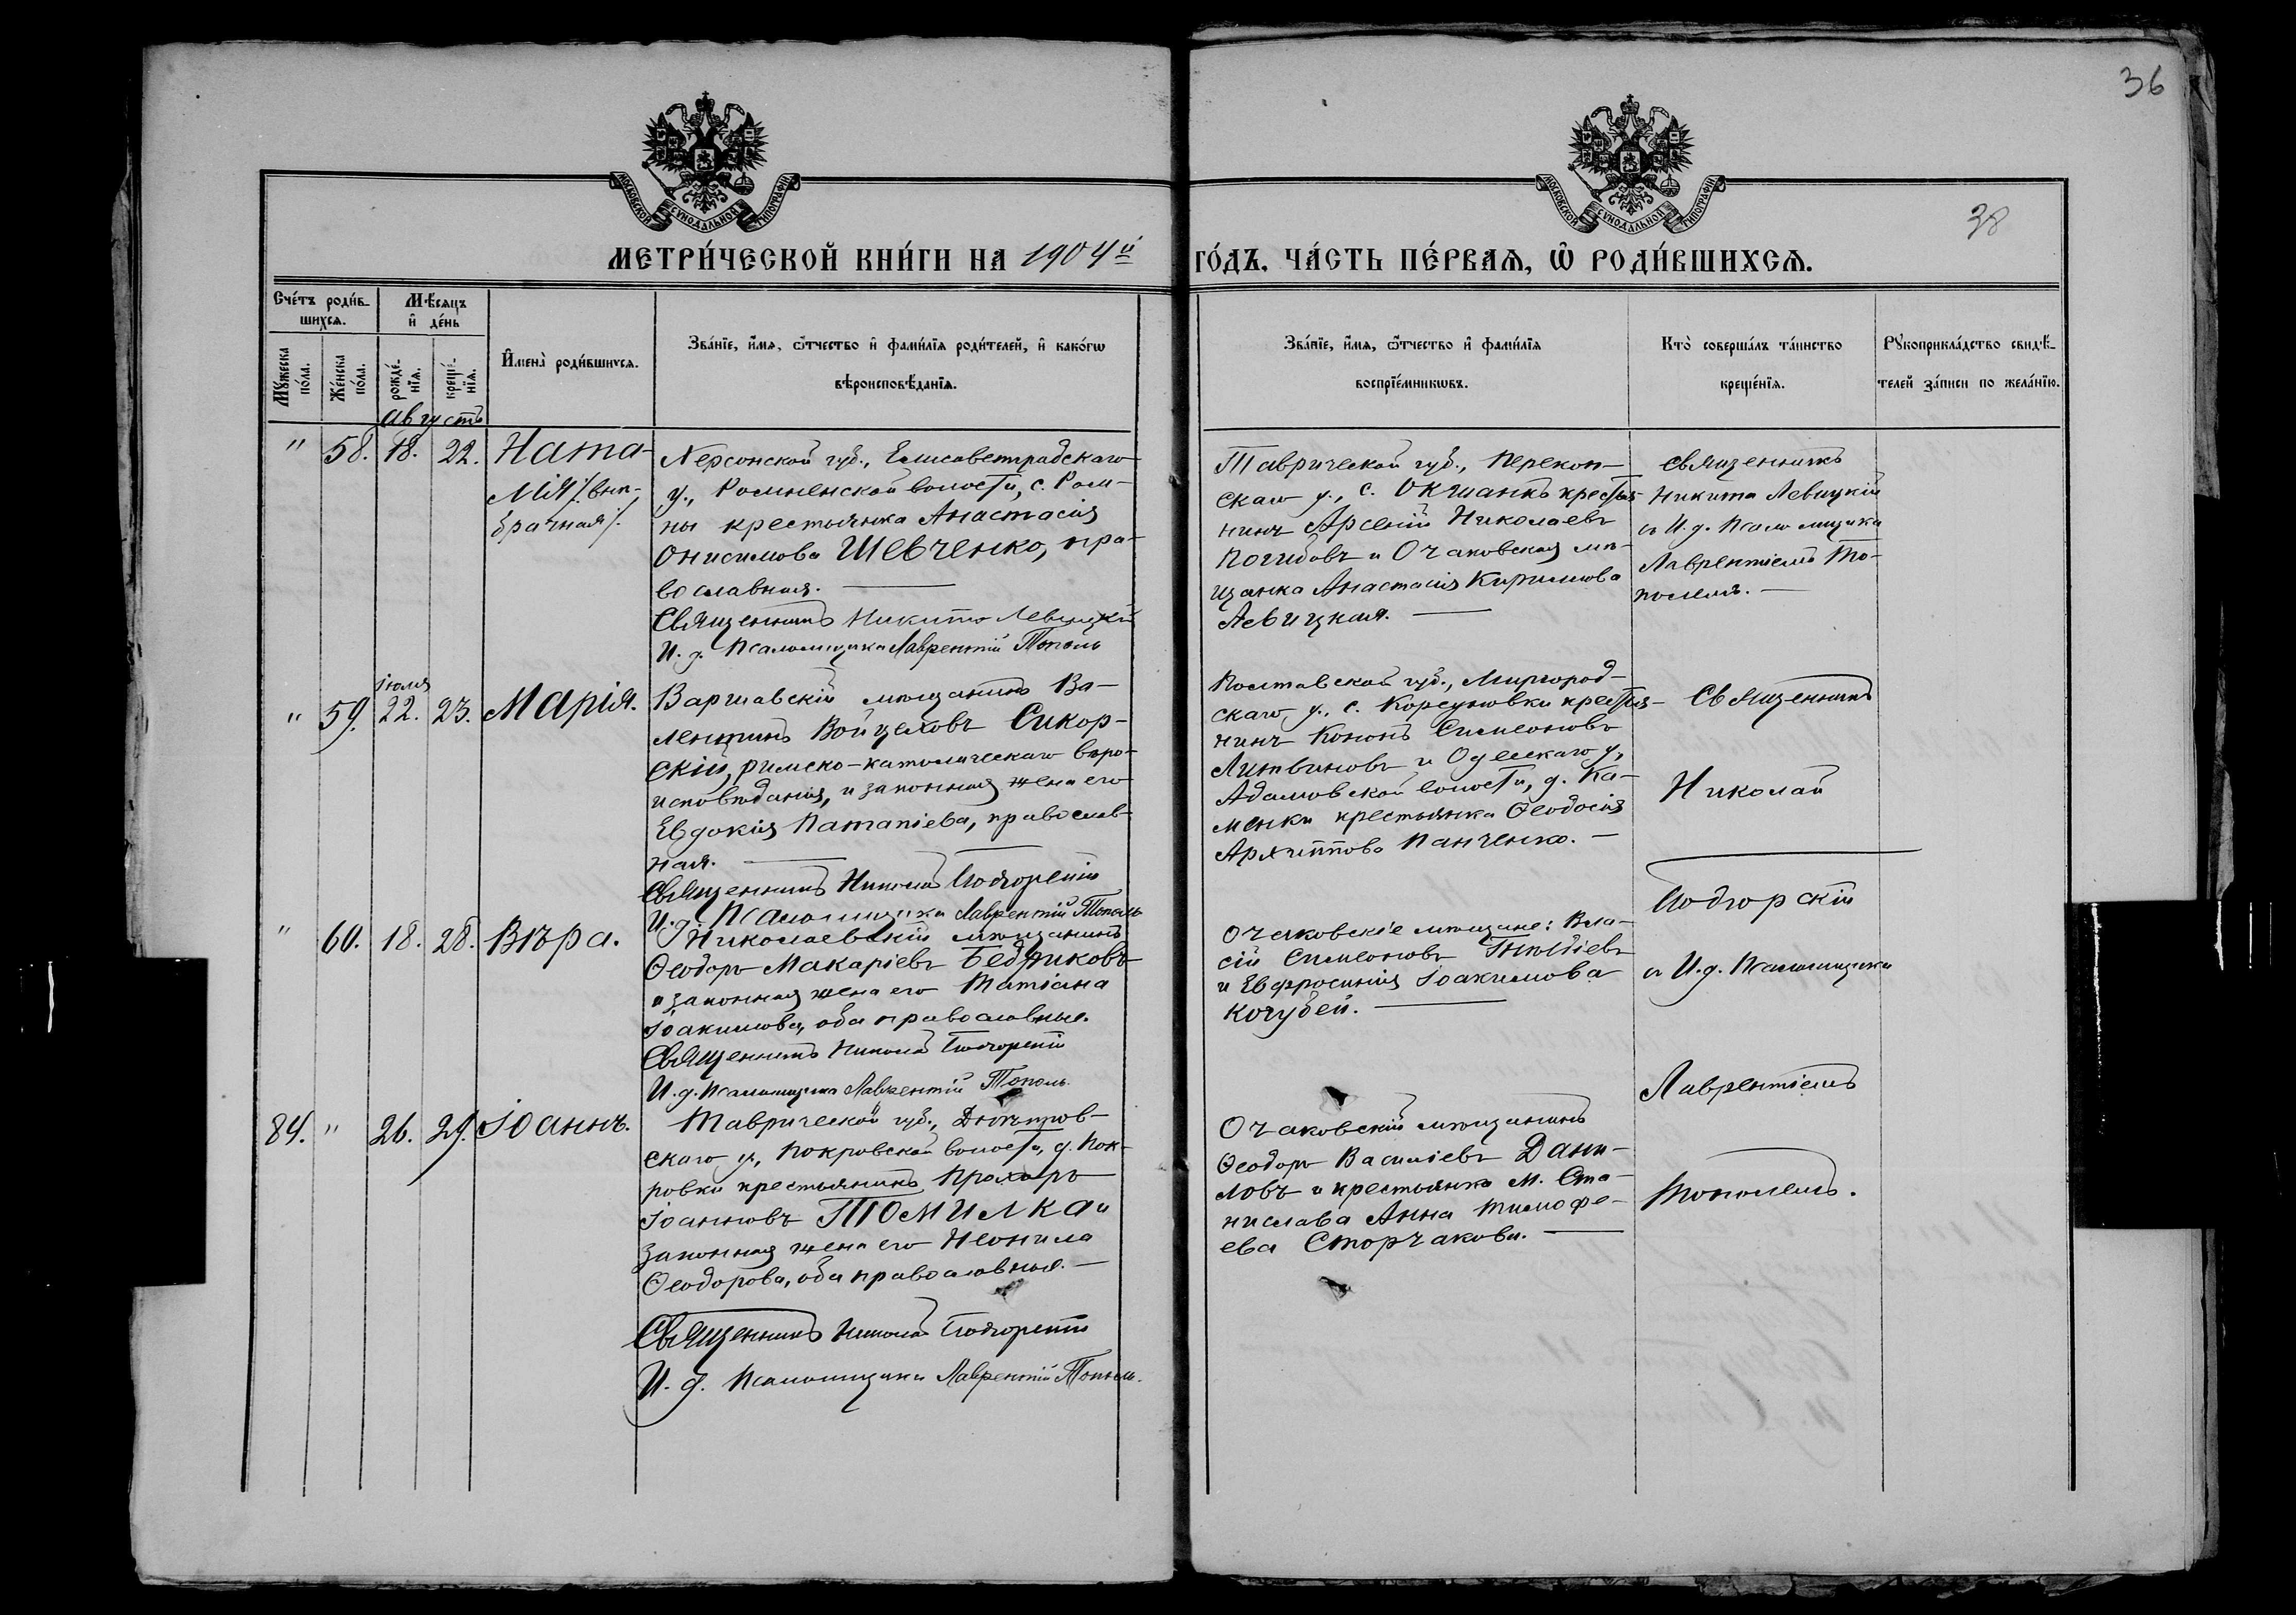 36
38
МОСКОВСКОЙ СУНОДАЛЬНОЙ ТИПОГРАФІИ
МОСКОВСКОЙ СУНОДАЛЬНОЙ ТИПОГРАФІИ
МЕТРИ́ЧЕСКОЙ КНИ́ГИ НА 1904й
ГО́ДЪ, ЧА́СТЬ ПЕ́РВАЯ, Ѡ РОДИ́ВШИХСЯ.
Сче́тъ роди́в-
шихся.
Мѣсяцъ
и҆ де́нь
Мꙋжеска
по́ла.
Же́нска
по́ла.
рожде́-
нїя.
креще́-
нїя.
И҆мена̀ роди́вшихся.
Зва́нїе, и҆́мя, ѻ҆́тчество и҆ фами́лїя роди́телей, и҆ како́гѡ
вѣроисповѣ́данїя.
Зва́нїе, и҆́мя, ѻ҆́тчество и҆ фами́лїя
воспрїе́мникѡвъ.
Кто̀ соверша́лъ та́инство
креще́нїя.
Рꙋкоприкла́дство свидѣ́-
телей за́писи по жела́нїю.
Августъ
" 58. 18. 22. Ната-
лія /: внѣ-
брачная :/.
Херсонской губ., Елисаветградскаго
у., Ровненской волости, с. Ров-
ны крестьянка Анастасія
Онисимова Шевченко, пра-
вославная.
Священникъ Никита Левицкій
И. д. Псаломщика Лаврентій Тополь
Таврической губ., Перекоп-
скаго у., с. крестья-
нинъ Арсеній Николаевъ
Погибовъ и Очаковская мѣ-
щанка Анастасія Кириллова
Левицкая.
Священникъ
Никита Левицкій
съ И. д. Псаломщика
Лаврентіемъ То-
полемъ.
" 59. іюля 22. 23. Марія.
Варшавскій мѣщанинъ Ва-
лентинъ Войцеховъ Сикор-
скій, римско-католическаго вѣро-
исповѣданія, и законная жена его
Евдокія Патапіева, православ-
ная.
Священникъ Николай Подгорскій
И. д. Псаломщика Лаврентій Тополь
Полтавской губ., Миргород-
скаго у., с. Корсуновки крестья-
нинъ Кононъ Симеоновъ
Литвиновъ и Одесскаго у.,
Адамовской волости, д. Ка-
менки крестьянка Ѳеодосія
Архиппова Панченко.
Священникъ
Николай
Подгорскій
съ И. д. Псаломщика
Лаврентіемъ
Тополемъ.
" 60. 18. 28. Вѣра.
Николаевскій мѣщанинъ
Ѳеодоръ Макаріевъ Бедриковъ
и законная жена его Татіана
Іоакимова, оба православные.
Священникъ Николай Подгорскій
И. д. Псаломщика Лаврентій Тополь.
Очаковскіе мѣщане: Вла-
сій Симеоновъ
и Евфросинія Іоакимова
Кочубей.
84. " 26. 29. Іоаннъ.
Таврической губ., Днѣпров-
скаго у., Покровской волости, д. Пок-
ровки крестьянинъ Прохоръ
Іоанновъ ТОМИЛКА и
законная жена его Неонила
Ѳеодорова, оба православные.
Священникъ Николай Подгорскій
И. д. Псаломщика Лаврентій Тополь.
Очаковскій мѣщанинъ
Ѳеодоръ Василіевъ Дани-
ловъ и крестьянка м. Ста-
нислава Анна Тимофе-
ева Сторчакова.